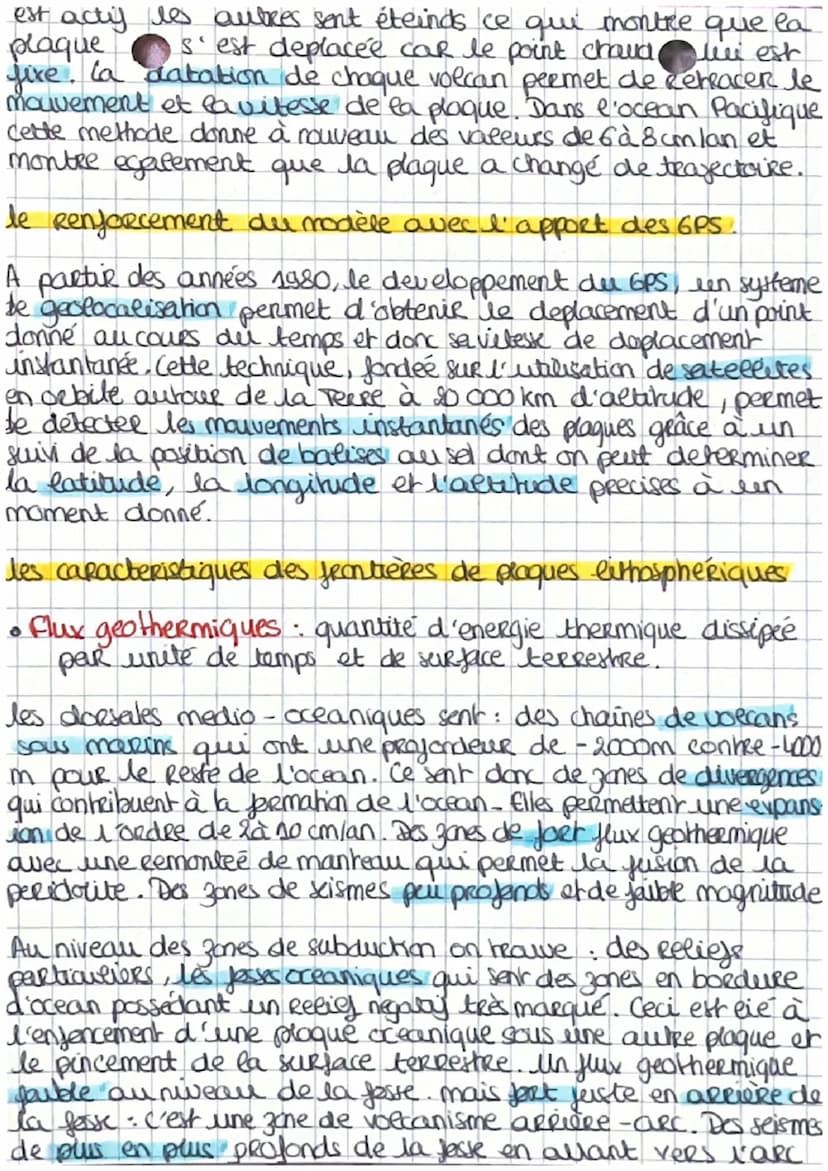 est actif les autres sont éteinds ce qui montre que la
plaque s'est deplacée car le point chaud lui est
fixe. La datation de chaque volcan permet de retracer le
mouvement et la vitesse de la plaque. Dans l'ocean Pacifique
cette methode donne à nouveau des valeurs de 6 à 8cm/an et
montre egalement que la plaque a changé de trajectoire.
le renforcement du modèle avec l'apport des GPS.
A partir des années 1980, le developpement du GPS, un systeme
de geolocalisation permet d'obtenir le deplacement d'un point
donné au cours du temps et donc sa vitesse de daplacement
instantanée. Cette technique, fondeé sur l'utilisation de satellites
en orbite autour de la Terre à 20 000 km d'altitude, permet
de détecter les mouvements instantanés des plaques grâce à un
suivi de la position de balises au sol dont on peut determiner
la latitude, la longitude et l'altitude precises à un
moment donné.
les caracteristiques des frontières de plaques lithosphériques
• Flux geothermiques : quantité d'energie thermique dissipeé
par unite de temps et de surface terrestre.
les dorsales medio-oceaniques sont : des chaines de volcans
sous marins qui ont une profondeur de -2000m contre -4000
m pour le reste de l'ocean. Ce sont donc de zones de divergences
qui contribuent à la formation de l'ocean - Elles permettent une expans
ion de l'ordre de 2 à 10 cm/an. Des zones de fort flux geothermique
avec une remonteé de manteau qui permet la fusion de la
peridotite. Des zones de seismes peu profonds et de faible magnitude
Au niveau des zones de subduction on trouve : des reliefs
particuliers, les fosses oceaniques qui sont des zones en bordure
d'ocean possédant un relief negatif très marqué. Ceci est lié à
l'enfoncement d'une plaque oceanique sous une autre plaque et
le pincement de la surface terrestre. Un flux geothermique
faible au niveau de la fosse mais fort juste en arrière de
la fosse : c'est une zone de volcanisme arrière-arc. Des seismes
de plus en plus profonds de la fosse en allant vers l'arc